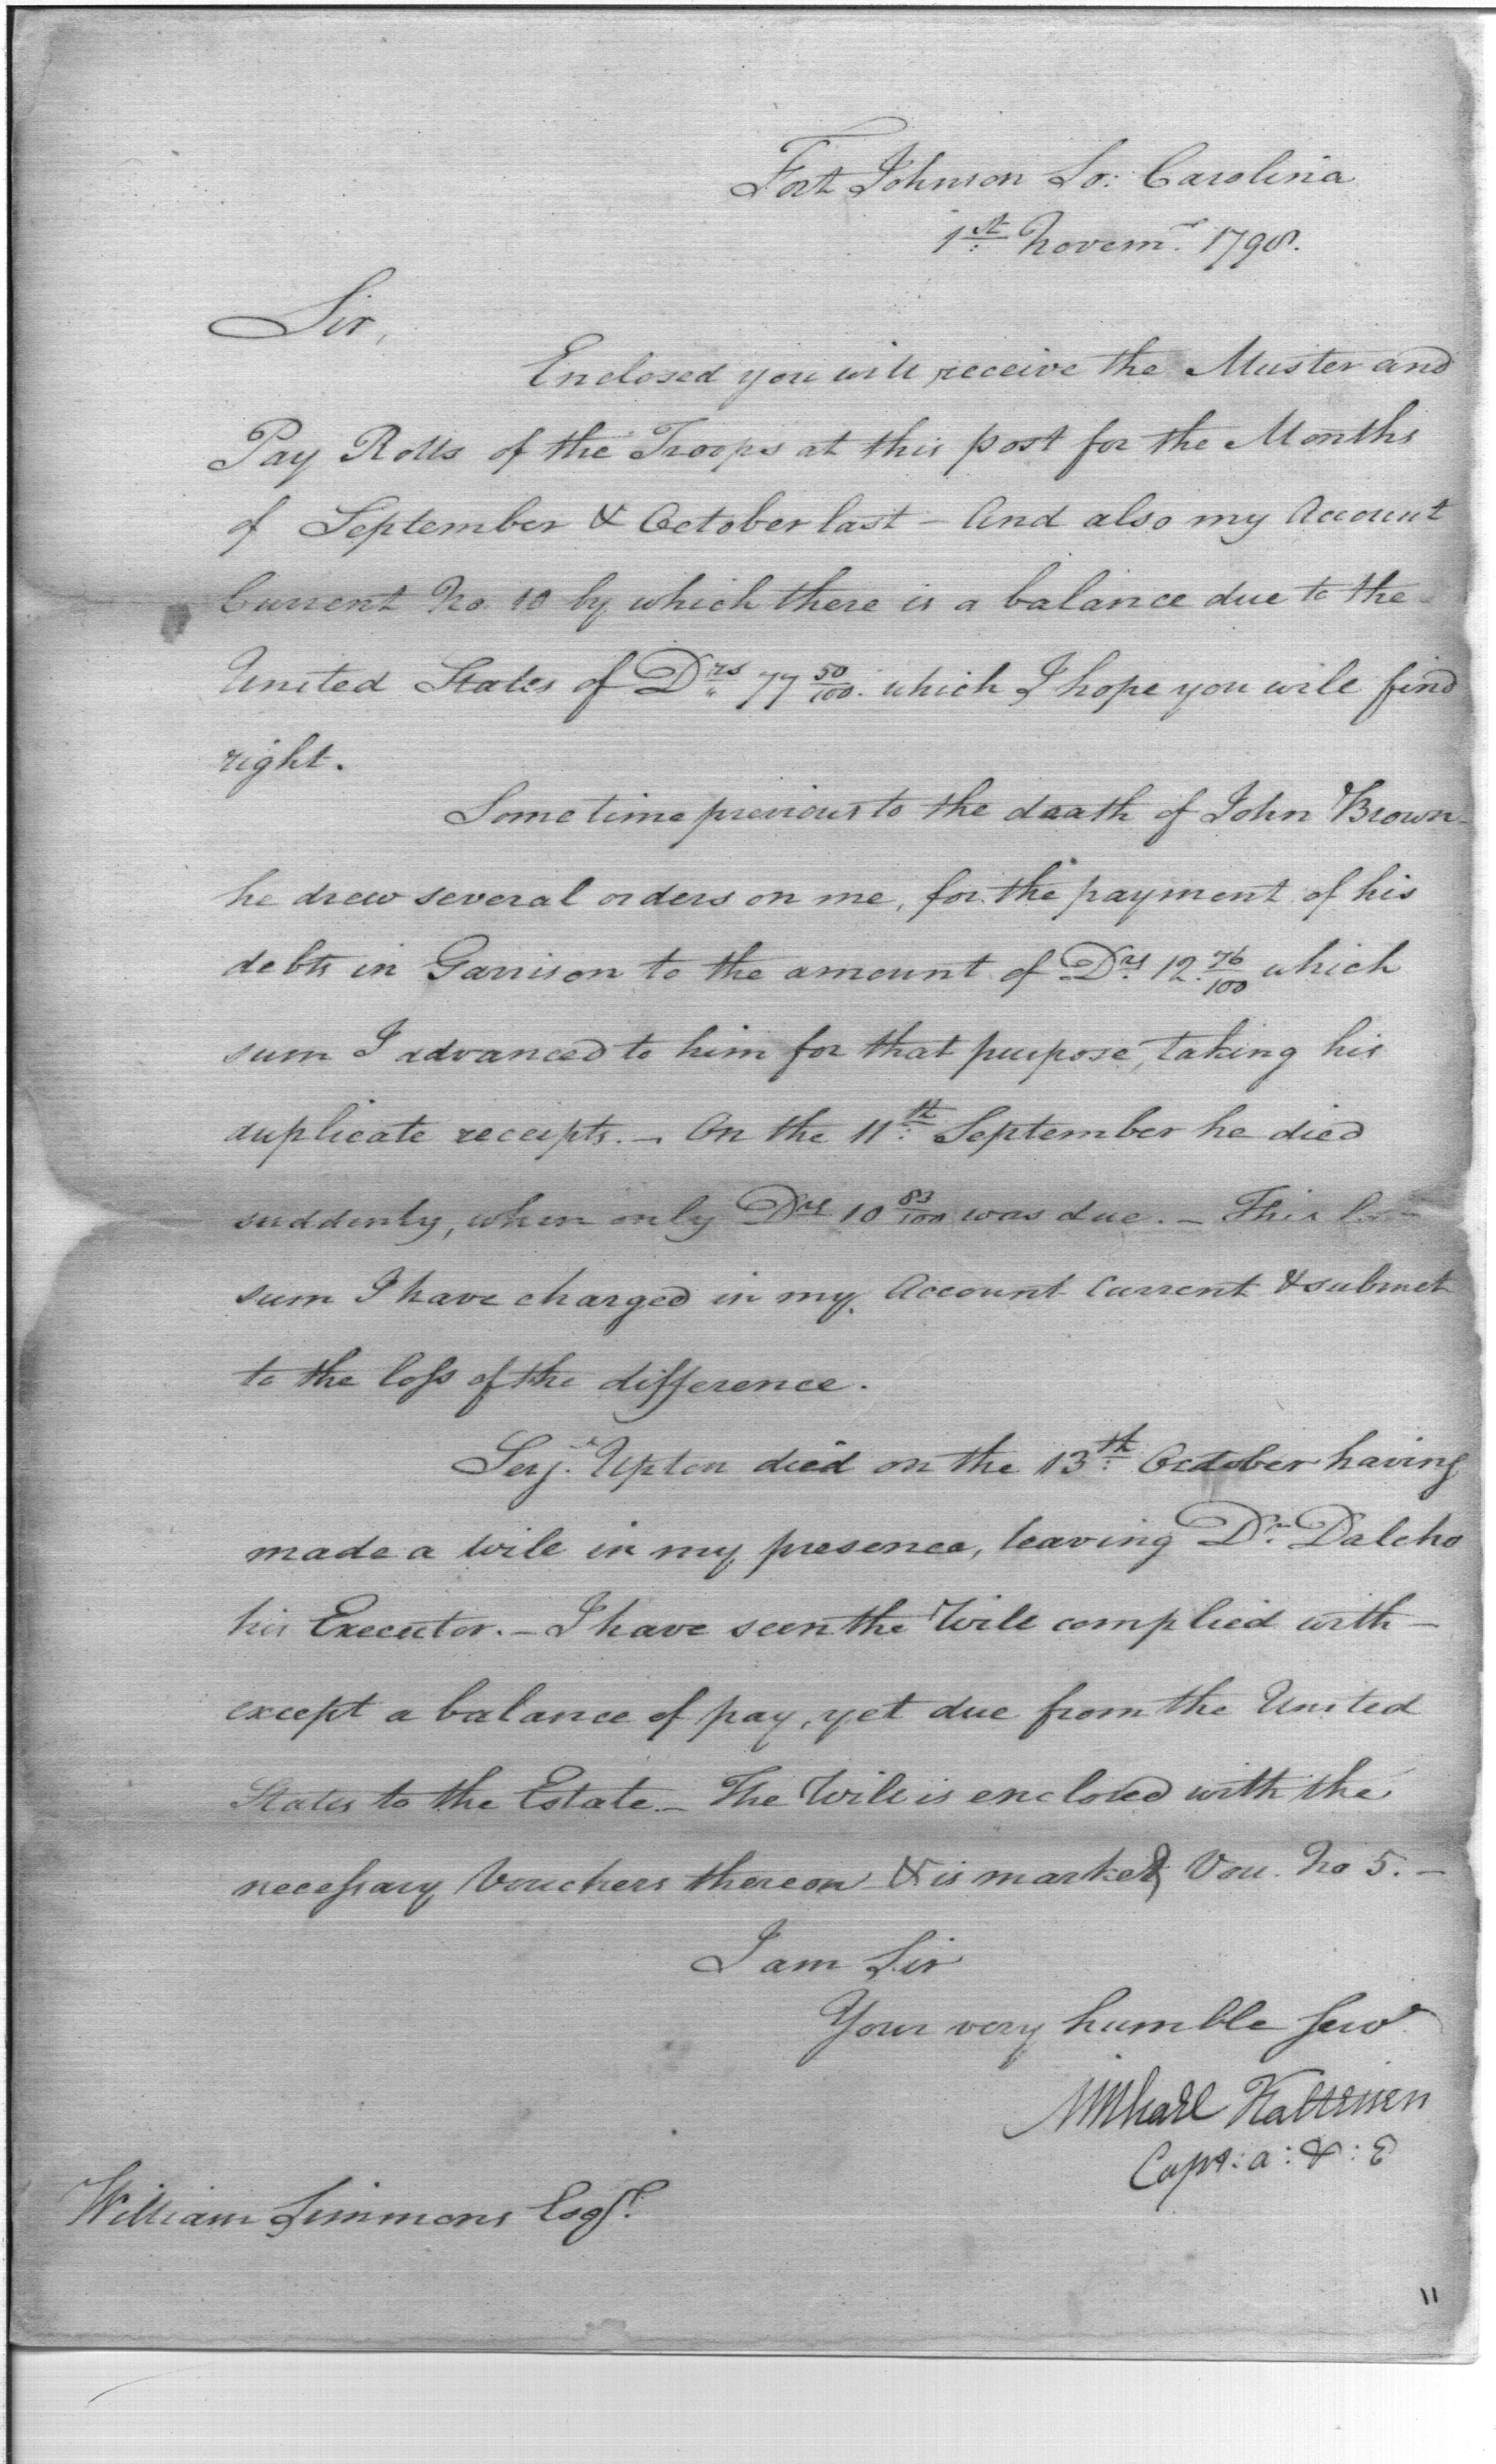 Fort Johnson So: Carolina
1st Novemr 1798.
Sir,
Enclosed you will receive the Muster and
Pay Rolls of the Troops at this post for the Months
of September & October last - And also my Account
Current No. 10 by which there is a balance due to the
United States of Drs 77 50/100. which I hope you will find
right.
Some time previous to the death of John Brown
he drew several orders on me, for the payment of his
debts in Garrison to the amount of Drs 12. 76/100 which
sum I advanced to him for that purpose, taking his
duplicate receipts. - On the 11th September he died
suddenly, when only Drs 10 83/100 was due. - This
sum I have charged in my Account Current & submit
to the loss of the difference.
Serjt Upton died on the 13th October having
made a Will in my presence, leaving Dr. Dalcho
his Executor. - I have seen the Will complied with -
except a balance of pay, yet due from the United
States to the Estate - The Will is enclosed with the
necessary Vouchers thereon & is marked Vou. No 5. -
I am Sir
Your very humble Serv
Michael Kalteisen
Capt: a: & : E
William Simmons Esqr.
11